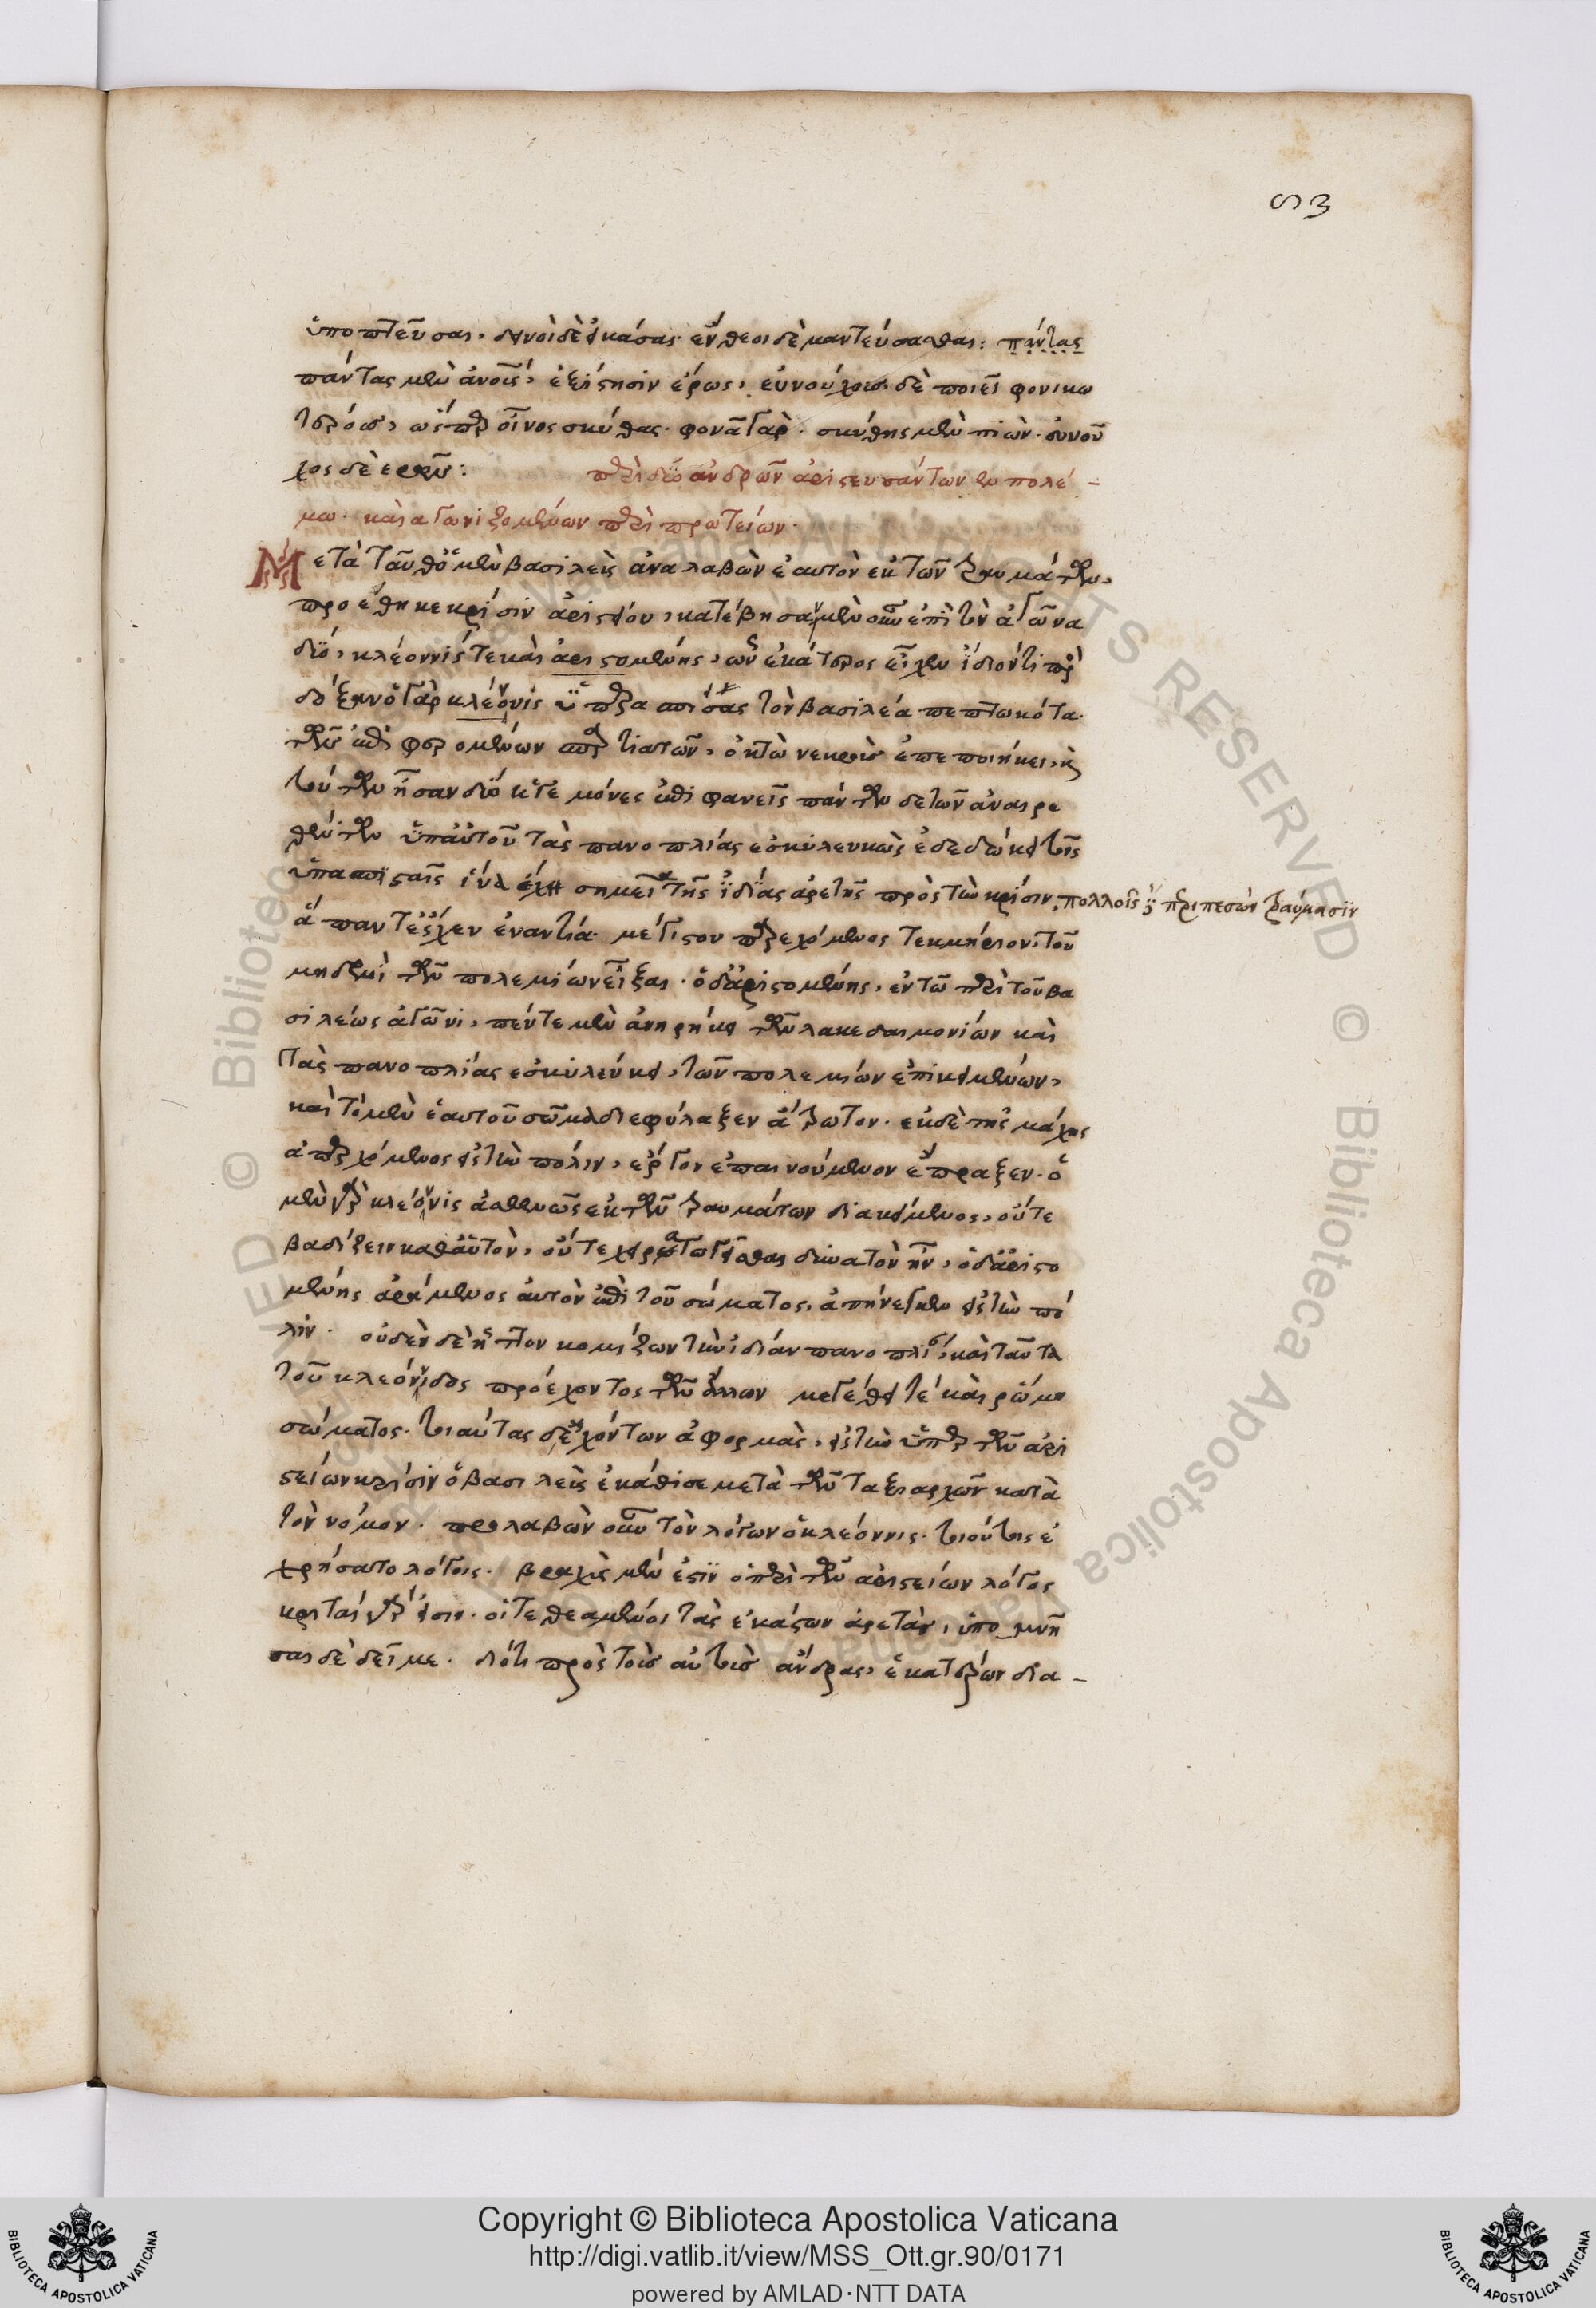 ϛη
ὑποπτεῦσαι, δεινοὶ δὲ εἰκάσαι· ἔνθεοι δὲ μαντεύσασθαι: πάντας
πάντας μὲν ἐξίστησιν ἔρως, εὐνούχους δὲ ποιεῖ φονικω
τέρους, ὥσπερ οἶνος σκύθας· φονᾶ γὰρ· σκύθης μὲν πιών· εὐνοῦ
χος δὲ ἐρῶν:
περὶ δύο ἀνδρῶν ἀριστευσάντων ἐν πολέ-
μω· καὶ ἀγωνιζομένων περὶ πρωτείων·
Μετὰ ταῦθ' ὁ μὲν βασιλεὺς ἀναλαβὼν ἑαυτὸν ἐκ τῶν τραυμάτων,
προέθηκε κρίσιν ἀριστείου, κατέβησαν μὲν οὖν ἐπὶ τὸν ἀγῶνα
δύο, κλέοννίς τε καὶ ἀριστομένης, ὧν ἑκάτερος εἶχεν ἴδιόν τι πρὸς
δόξαν ὁ γὰρ κλέοννις ὑπερασπίσας τὸν βασιλέα πεπτωκότα·
τῶν ἐπιφερομένων σπαρτιατῶν, ὀκτὼ νεκροὺς ἐπεποιήκει, καὶ
τούτων ἦσαν δύο ἡγεμόνες ἐπιφανεῖς πάντων δὲ τῶν ἀναιρε
θέντων ὑπ' αὐτοῦ τὰς πανοπλίας ἐσκυλευκὼς ἐδεδώκει τοῖς
ὑπασπισταῖς ἵνα ἔχῃ σημεῖα τῆς ἰδίας ἀρετῆς πρὸς τὴν κρίσιν, πολλοῖς δὲ περιπεσὼν τραύμασϊν
ἅπαντ' ἔσχεν ἐναντία· μέγιστον παρεχόμενος τεκμήριον, τοῦ
μηδενὶ τῶν πολεμίων εἶξαι· ὁ δ' ἀριστομένης, ἐν τῶ περὶ τοῦ βα
σιλέως ἀγῶνι, πέντε μὲν ἀνηρήκει τῶν λακεδαιμονίων καὶ
τὰς πανοπλίας ἐσκύλευκει, τῶν πολεμίων ἐπικειμένων,
καὶ τὸ μὲν ἑαυτοῦ σῶμα διεφύλαξεν ἄτρωτον· ἐκ δὲ τῆς μάχης
ἀπερχόμενος εἰς τὴν πόλιν, ἔργον ἐπαινούμενον ἔπραξεν· ὁ
μὲν γὰρ κλέοννις ἀσθενῶς ἐκ τῶν τραυμάτων διακείμενος, οὔτε
βαδίζειν καθ' αὑτὸν, οὔτε χειραγωγεῖσθαι δυνατὸν ἦν, ὁ δ' ἀριστο
μένης ἀράμενος αὐτὸν ἐπὶ τοῦ σώματος, ἀπήνεγκεν εἰς τὴν πό
λιν· οὐδὲν δὲ ἧττον κομίζων τὴν ἰδίαν πανοπλίαν, καὶ ταῦτα
τοῦ κλεόννιδος προέχοντος τῶν ἄλλων μεγέθει τὲ καὶ ῥώμῃ
σώματος· τοιαύτας δ' ἐχόντων ἀφορμὰς, εἰς τὴν ὑπὲρ τῶν ἀρι
στείων κρίσιν ὁ βασιλεὺς ἐκάθισε μετὰ τῶν ταξιαρχῶν κατὰ
τὸν νόμον· προλαβὼν οὖν τὸν λόγων ὁ κλέοννις· τοιούτοις ἐ
χρήσατο λόγοις· βραχὺς μέν ἐστϊν ὁ περὶ τῶν ἀριστείων λόγος
κριταὶ γάρ εἰσιν· οἵ τεθεαμένοι τὰς ἑκάστων ἀρετὰς, ὑπομνῆ
σαι δὲ δεῖ με· διότι πρὸς τοὺς αὐτοὺς ἄνδρας, ἑκατέρων δια-
Copyright © Biblioteca Apostolica Vaticana
http://digi.vatlib.it/view/MSS_Ott.gr.90/0171
powered by AMLAD·NTT DATA
BIBLIOTECA APOSTOLICA VATICANA
BIBLIOTECA APOSTOLICA VATICANA